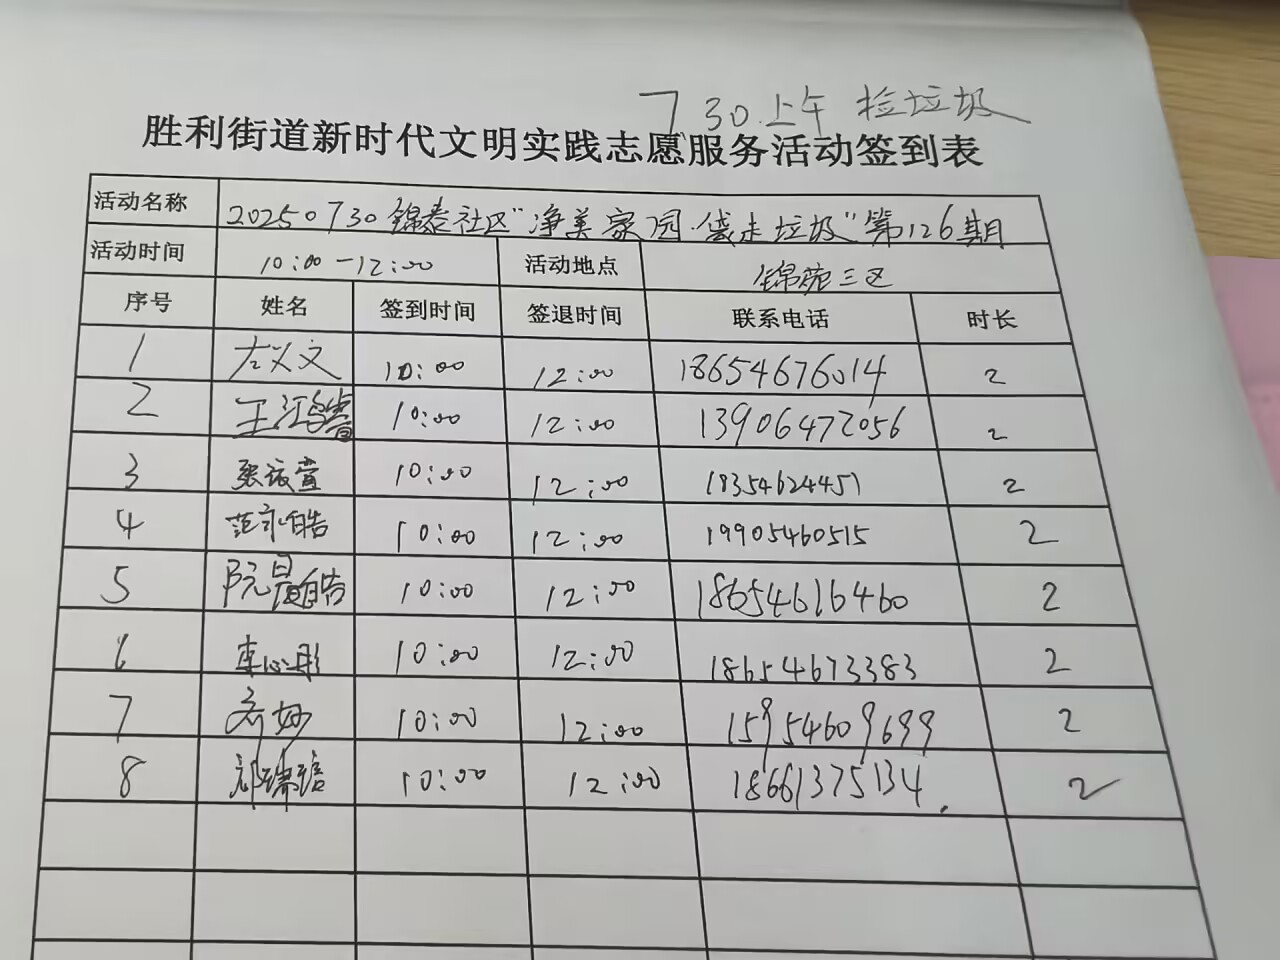 7 30.上午 捡垃圾
胜利街道新时代文明实践志愿服务活动签到表
活动名称 20250730锦泰社区"净美家园·袋走垃圾"第126期
活动时间 10:00-12:00 活动地点 锦苑三区
序号 姓名 签到时间 签退时间 联系电话 时长
1 左义文 10:00 12:00 18654676014 2
2 王鸿睿 10:00 12:00 13906472056 2
3 张议萱 10:00 12:00 18354624457 2
4 范永皓 10:00 12:00 19905460515 2
5 阮晨皓 10:00 12:00 18654616460 2
6 车心彤 10:00 12:00 18654673383 2
7 乔妙 10:00 12:00 15954609699 2
8 10:00 12:00 18661375134. 2